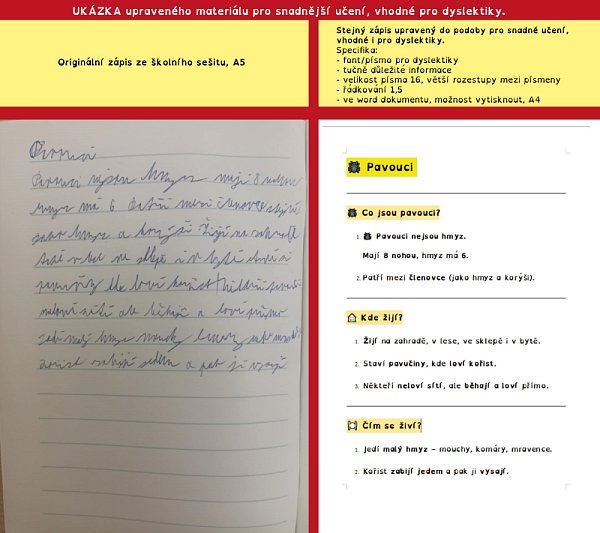 UKÁZKA upraveného materiálu pro snadnější učení, vhodné pro dyslektiky.
Originální zápis ze školního sešitu, A5
Stejný zápis upravený do podoby pro snadné učení,
vhodné i pro dyslektiky.
Specifika:
- font/písmo pro dyslektiky
- tučně důležité informace
- velikost písma 16, větší rozestupy mezi písmeny
- řádkování 1,5
- ve word dokumentu, možnost vytisknout, A4
Pavouci
Pavouci nejsou hmyz mají 8 nohou
hmyz má 6 Patří mezi členovce stejně
jako hmyz a korýši Žijí na zahradě
v lese ve sklepě i v bytě staví si
pavučiny kde loví kořist Někteří pavouci
neloví sítí ale běhají a loví přímo
Jedí malý hmyz mouchy komáry nebo
kořist zabijí jedem a pak ji vysají
Pavouci
Co jsou pavouci?
1. Pavouci nejsou hmyz.
Mají 8 nohou, hmyz má 6.
2. Patří mezi členovce (jako hmyz a korýši).
Kde žijí?
1. Žijí na zahradě, v lese, ve sklepě i v bytě.
2. Staví pavučiny, kde loví kořist.
3. Někteří neloví sítí, ale běhají a loví přímo.
Čím se živí?
1. Jedí malý hmyz – mouchy, komáry, mravence.
2. Kořist zabijí jedem a pak ji vysají.